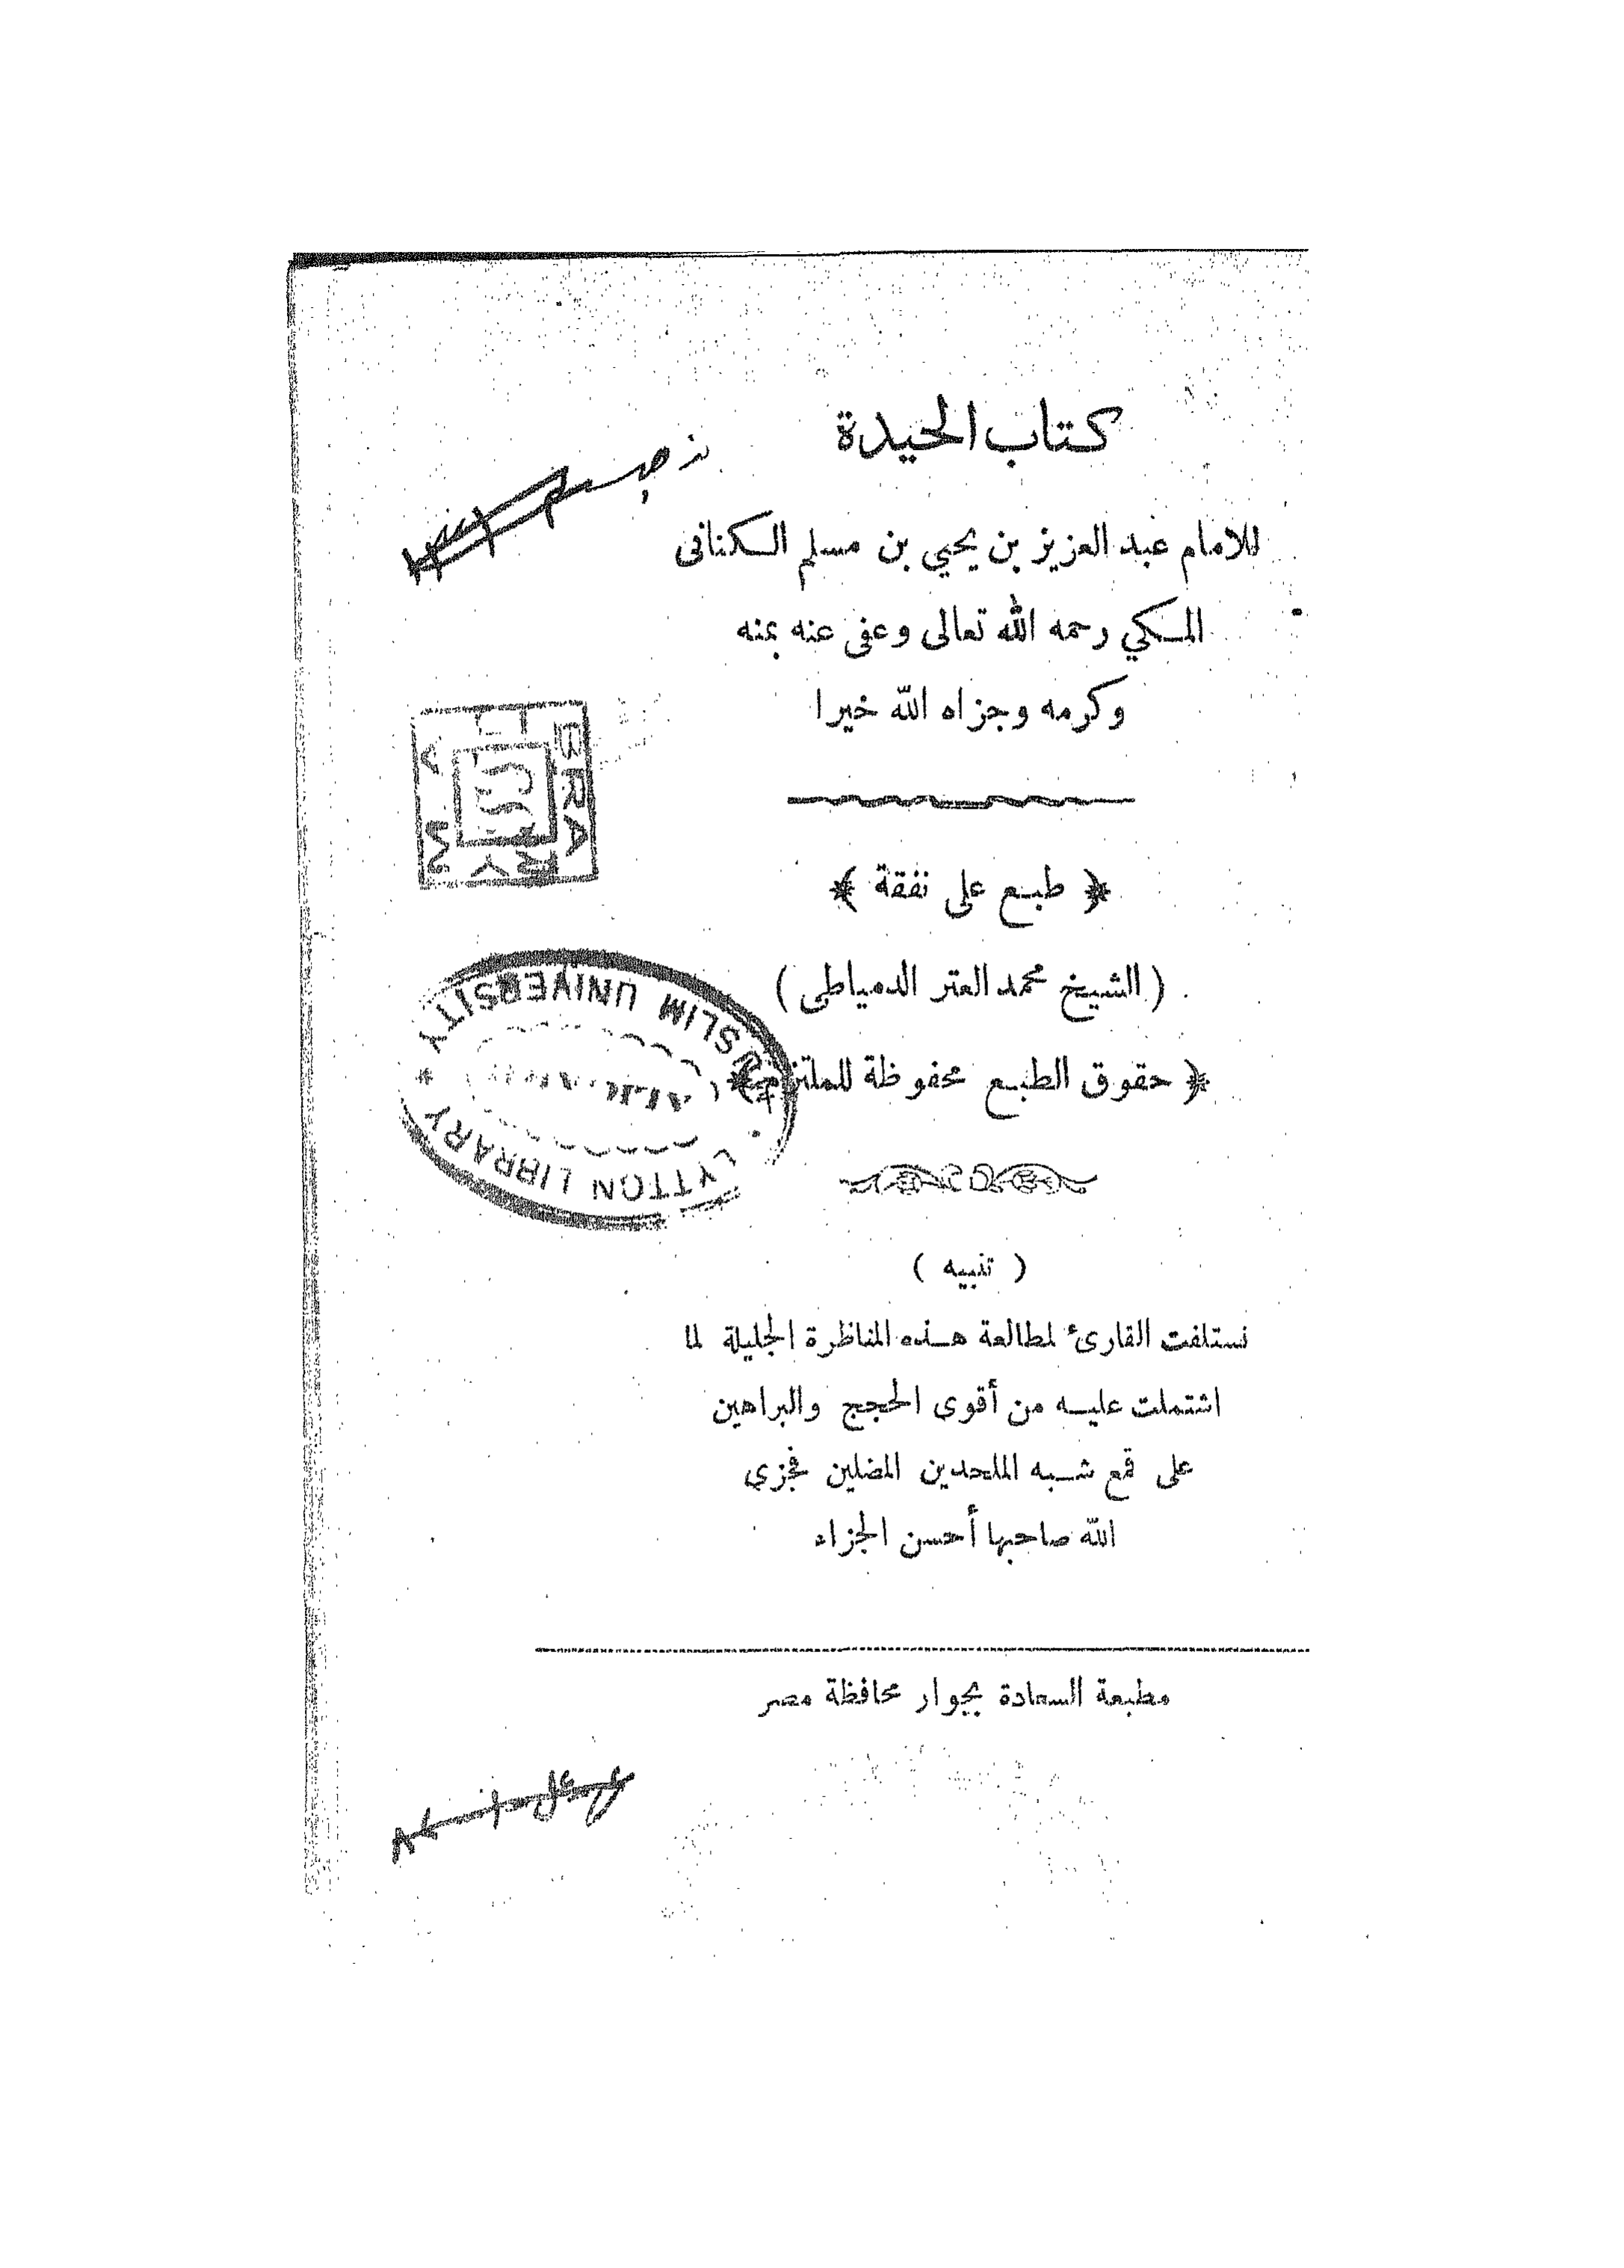 كتاب الحيدة
للامام عبد العزيز بن يحيي بن مسلم الكنانى
المكي رحمه الله تعالى وعفى عنه بمنه
وكرمه وجزاه الله خيرا
LIBRARY
﴿ طبع على نفقة ﴾
( الشيخ محمد العتر الدمياطى )
﴿ حقوق الطبع محفوظة للملتزم ﴾
MUSLIM UNIVERSITY
LYTTON LIBRARY
( تنبيه )
نستلفت القارئ لمطالعة هذه المناظرة الجليلة لما
اشتملت عليه من أقوى الحجج والبراهين
على قمع شبه الملحدين المضلين فجزى
الله صاحبها أحسن الجزاء
مطبعة السعادة بجوار محافظة مصر